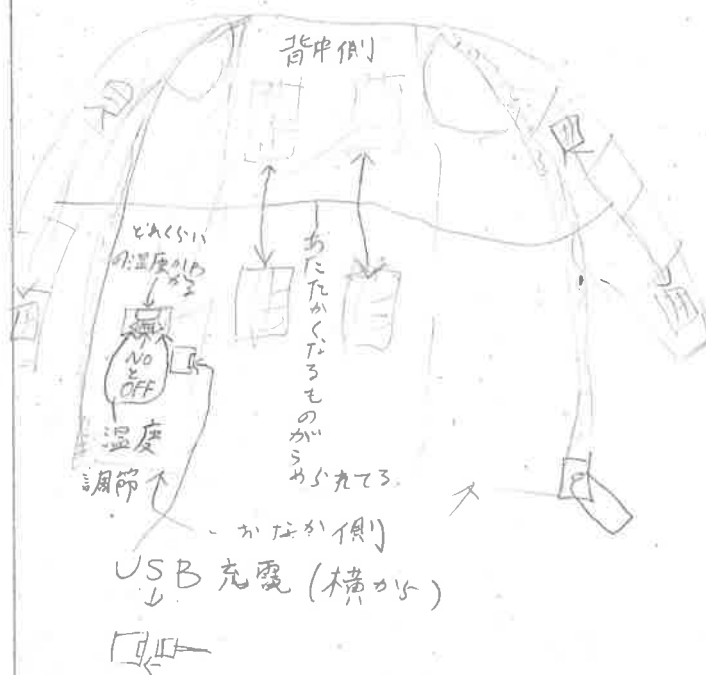 背中側
どれくらい
の温度かわ
かる
NO
と
OFF
温度
調節
あたたかくなるものがうめられてる
おなか側
USB充電(横から)